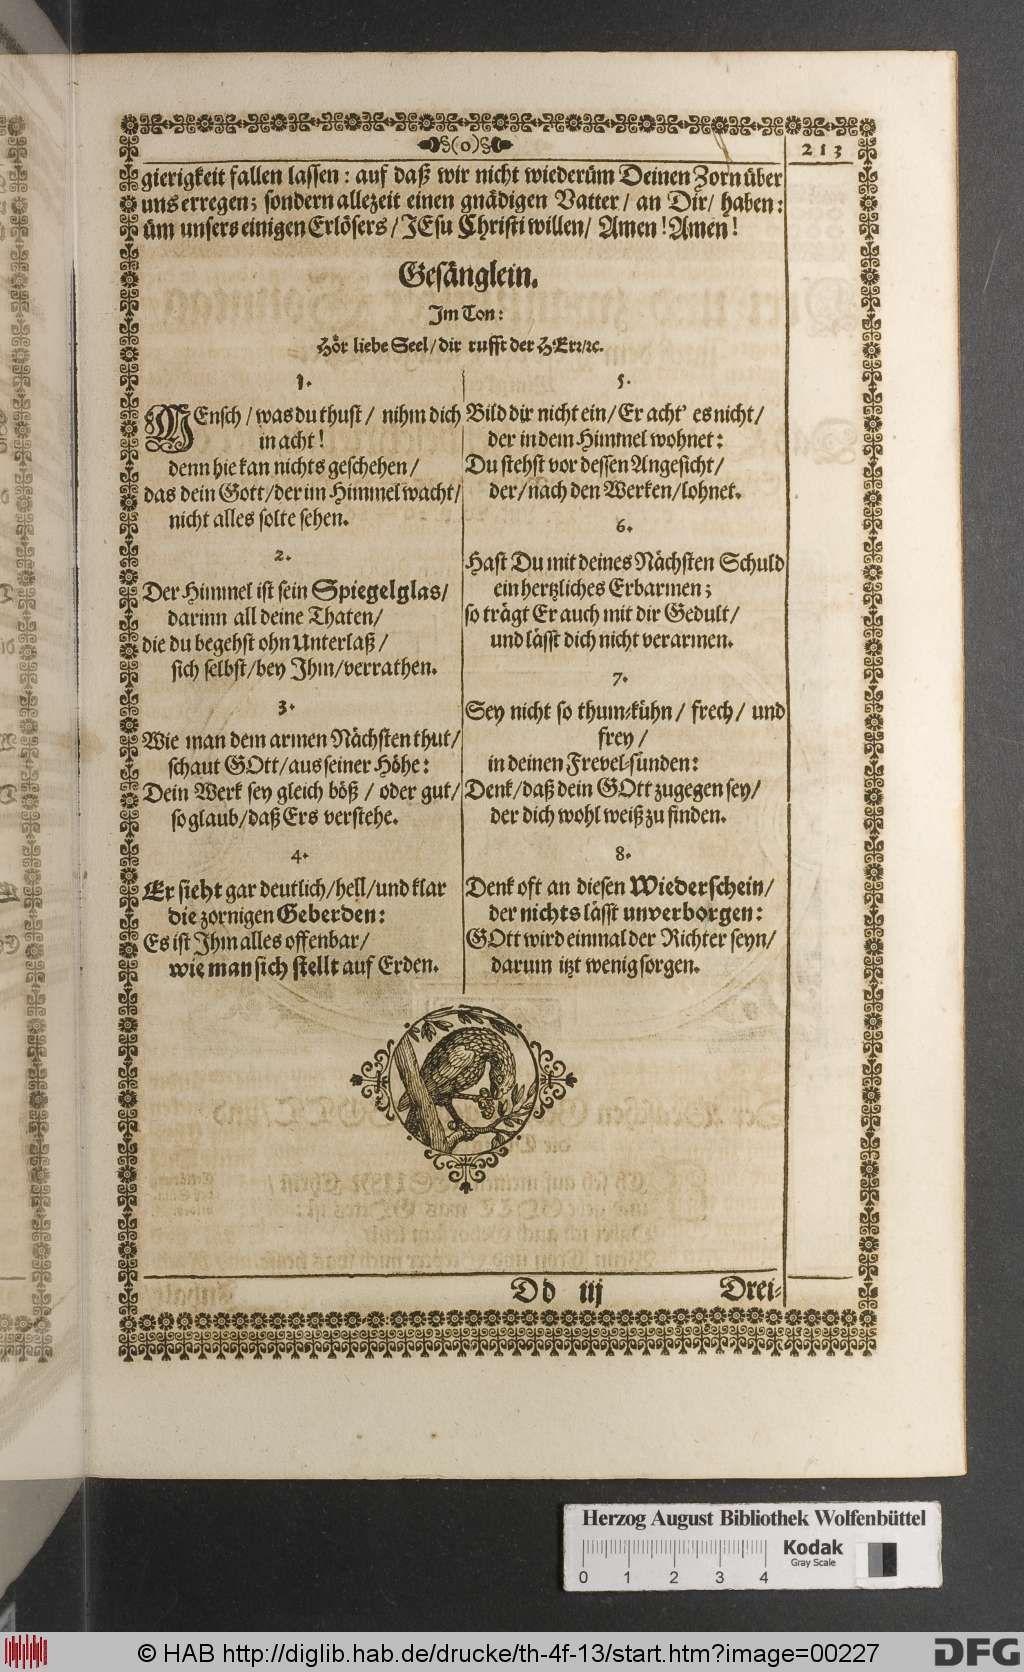 §(o)§
213
gierigkeit fallen lassen: auf daß wir nicht wiederüm Deinen Zorn über
uns erregen; sondern allezeit einen gnädigen Vatter/ an Dir/ haben:
üm unsers einigen Erlösers/ JEsu Christi willen/ Amen! Amen!
Gesänglein.
Im Ton:
Hör liebe Seel/ dir rufft der HErr/ ꝛc.
1.
MEnsch/ was du thust/ nihm dich
in acht!
denn hie kan nichts geschehen/
das dein Gott/ der im Himmel wacht/
nicht alles solte sehen.
2.
Der Himmel ist sein Spiegelglas/
darinn all deine Thaten/
die du begehst ohn Unterlaß/
sich selbst/ bey Ihm/ verrathen.
3.
Wie man dem armen Nächsten thut/
schaut GOtt/ aus seiner Höhe:
Dein Werk sey gleich böß/ oder gut/
so glaub/ daß Ers verstehe.
4.
Er sieht gar deutlich/ hell/ und klar
die zornigen Geberden:
Es ist Ihm alles offenbar/
wie man sich stellt auf Erden.
5.
Bild dir nicht ein/ Er acht' es nicht/
der in dem Himmel wohnet:
Du stehst vor dessen Angesicht/
der/ nach den Werken/ lohnet.
6.
Hast Du mit deines Nächsten Schuld
ein hertzliches Erbarmen;
so trägt Er auch mit dir Gedult/
und lässt dich nicht verarmen.
7.
Sey nicht so thum-kühn/ frech/ und
frey/
in deinen Frevel-sünden:
Denk/ daß dein GOtt zugegen sey/
der dich wohl weiß zu finden.
8.
Denk oft an diesen Wiederschein/
der nichts lässt unverborgen:
GOtt wird einmal der Richter seyn/
darum itzt wenig sorgen.
Dd iij
Drei-
Herzog August Bibliothek Wolfenbüttel
Kodak
Gray Scale
0 1 2 3 4
© HAB http://diglib.hab.de/drucke/th-4f-13/start.htm?image=00227
DFG